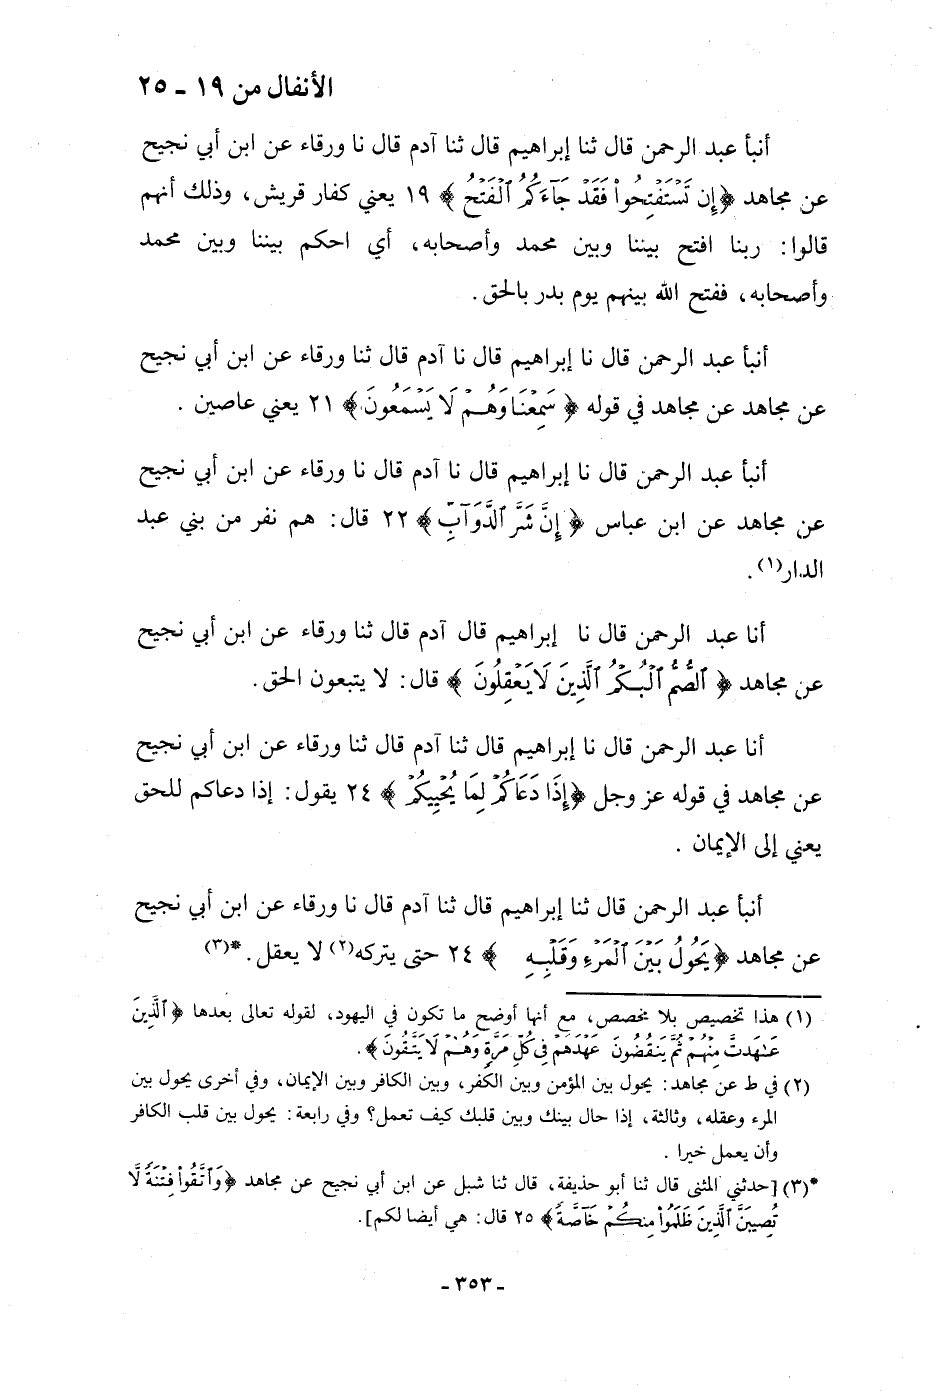 الأنفال من ١٩ - ٢٥
أنبأ عبد الرحمن قال ثنا إبراهيم قال ثنا آدم قال نا ورقاء عن ابن أبي نجيح
عن مجاهد ﴿إِن تَسْتَفْتِحُوا۟ فَقَدْ جَآءَكُمُ ٱلْفَتْحُ﴾ ١٩ يعني كفار قريش، وذلك أنهم
قالوا: ربنا افتح بيننا وبين محمد وأصحابه، أي احكم بيننا وبين محمد
وأصحابه، ففتح الله بينهم يوم بدر بالحق.
أنبأ عبد الرحمن قال نا إبراهيم قال نا آدم قال ثنا ورقاء عن ابن أبي نجيح
عن مجاهد عن مجاهد في قوله ﴿سَمِعْنَا وَهُمْ لَا يَسْمَعُونَ﴾ ٢١ يعني عاصين.
أنبأ عبد الرحمن قال نا إبراهيم قال نا آدم قال نا ورقاء عن ابن أبي نجيح
عن مجاهد عن ابن عباس ﴿إِنَّ شَرَّ ٱلدَّوَآبِّ﴾ ٢٢ قال: هم نفر من بني عبد
الدار(١).
أنا عبد الرحمن قال نا إبراهيم قال آدم قال ثنا ورقاء عن ابن أبي نجيح
عن مجاهد ﴿ٱلصُّمُّ ٱلْبُكْمُ ٱلَّذِينَ لَا يَعْقِلُونَ﴾ قال: لا يتبعون الحق.
أنا عبد الرحمن قال نا إبراهيم قال ثنا آدم قال ثنا ورقاء عن ابن أبي نجيح
عن مجاهد في قوله عز وجل ﴿إِذَا دَعَاكُمْ لِمَا يُحْيِيكُمْ﴾ ٢٤ يقول: إذا دعاكم للحق
يعني إلى الإيمان.
أنبأ عبد الرحمن قال ثنا إبراهيم قال ثنا آدم قال نا ورقاء عن ابن أبي نجيح
عن مجاهد ﴿يَحُولُ بَيْنَ ٱلْمَرْءِ وَقَلْبِهِ﴾ ٢٤ حتى يتركه(٢) لا يعقل.*(٣)
(١) هذا تخصيص بلا مخصص، مع أنها أوضح ما تكون في اليهود، لقوله تعالى بعدها ﴿ٱلَّذِينَ
عَـٰهَدتَّ مِنْهُمْ ثُمَّ يَنقُضُونَ عَهْدَهُمْ فِى كُلِّ مَرَّةٍ وَهُمْ لَا يَتَّقُونَ﴾.
(٢) في ط عن مجاهد: يحول بين المؤمن وبين الكفر، وبين الكافر وبين الإيمان، وفي أخرى يحول بين
المرء وعقله، وثالثة، إذا حال بينك وبين قلبك كيف تعمل؟ وفي رابعة: يحول بين قلب الكافر
وأن يعمل خيرا.
*(٣) [حدثني المثنى قال ثنا أبو حذيفة، قال ثنا شبل عن ابن أبي نجيح عن مجاهد ﴿وَٱتَّقُوا۟ فِتْنَةً لَّا
تُصِيبَنَّ ٱلَّذِينَ ظَلَمُوا۟ مِنكُمْ خَآصَّةً﴾ ٢٥ قال: هي أيضا لكم].
- ٣٥٣ -